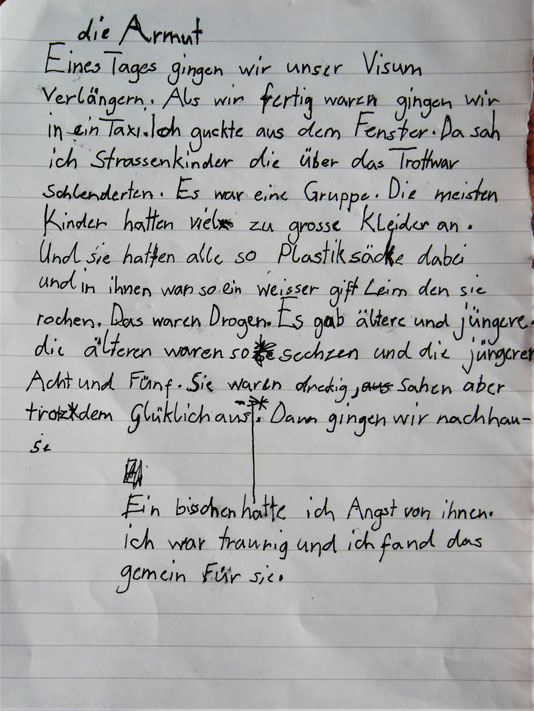 die Armut
Eines Tages gingen wir unser Visum
Verlängern. Als wir fertig waren gingen wir
in ein Taxi. Ich guckte aus dem Fenster. Da sah
ich Strassenkinder die über das Trottwar
schlenderten. Es war eine Gruppe. Die meisten
Kinder hatten viel zu grosse Kleider an.
Und sie hatten alle so Plastiksäcke dabei
und in ihnen war so ein weisser gift Leim den sie
rochen. Das waren Drogen. Es gab ältere und jüngere.
die älteren waren so sechzen und die jüngeren
Acht und Fünf. Sie waren dreckig, sahen aber
trotzdem Glüklich aus. * Dann gingen wir nachhau-
se
Ein bischen hatte ich Angst von ihnen.
ich war traurig und ich fand das
gemein Für sie.